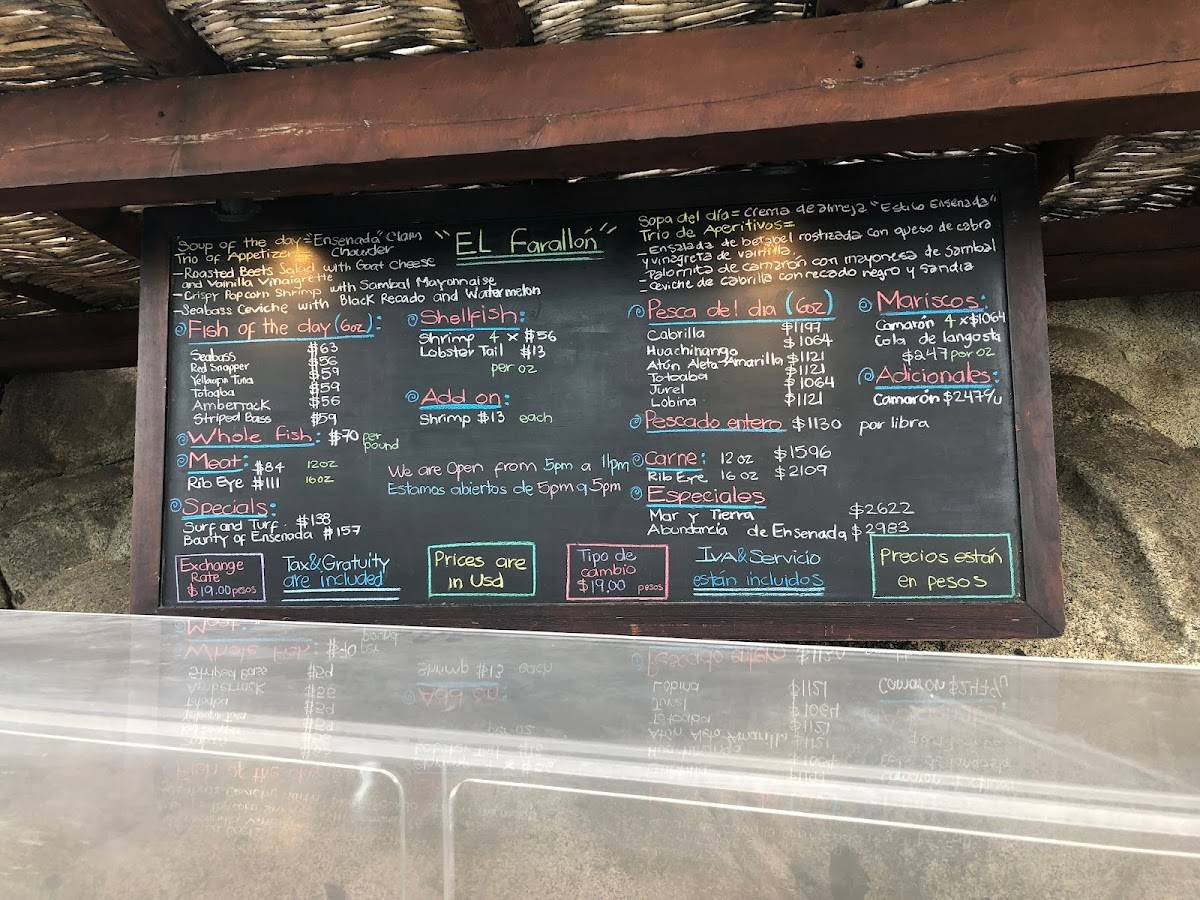 "EL Farallón"
Soup of the day="Ensenada" Clam
Chowder
Trio of Appetizer=
-Roasted Beets Salad with Goat Cheese
and Vainilla Vinaigrette
-Crispy Popcorn Shrimp with Sambal Mayonnaise
-Seabass Ceviche with Black Recado and Watermelon
Fish of the day (6oz):
Seabass $63
Red Snapper $56
Yellowfin Tuna $59
Totoaba $59
Amberjack $56
Striped Bass $59
Whole fish: $70 per pound
Meat: $84 12oz
Rib Eye $111 16oz
Specials:
Surf and Turf. $138
Baunty of Ensenada $157
Shellfish:
Shrimp 4 x $56
Lobster Tail $13
per oz
Add on:
Shrimp $13 each
We are Open from 5pm a 11pm
Estamos abiertos de 5pm a 5pm
Exchange
Rate
$19.00 pesos
Tax&Gratuity
are included
Prices are
in Usd
Sopa del día= Crema de almeja "Estilo Ensenada"
Trio de Aperitivos=
-Ensalada de betabel rostizada con queso de cabra
y vinagreta de vainilla.
-Palomita de camarón con mayonesa de Sambal
-Ceviche de cabrilla con recado negro y sandia
Pesca del dia (6oz)
Cabrilla $1197
Huachinango $1064
Atún Aleta Amarilla $1121
Totoaba $1121
Jurel $1064
Lobina $1121
Pescado entero $1130 por libra
Carne: 12 oz $1596
Rib Eye 16 oz $2109
Especiales
Mar y Tierra $2622
Abundancia de Ensenada $2983
Mariscos:
Camarón 4 x $1064
Cola de langosta
$247 por oz
Adicionales:
Camarón $247 c/u
Tipo de
cambio
$19.00 pesos
IVA&Servicio
están incluidos
Precios están
en pesos